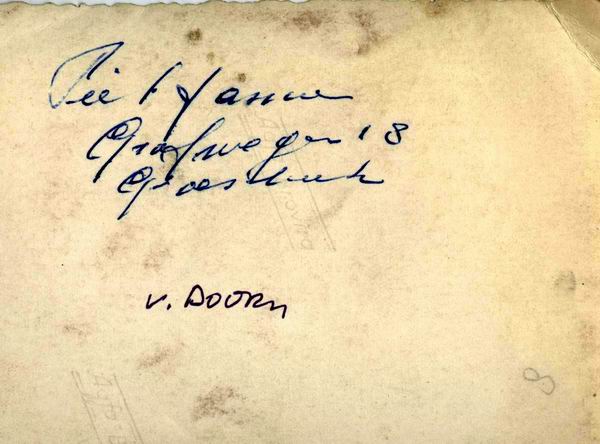 Piet Janssen
Grafwegen 18
Groesbeek
v. DOORN
8